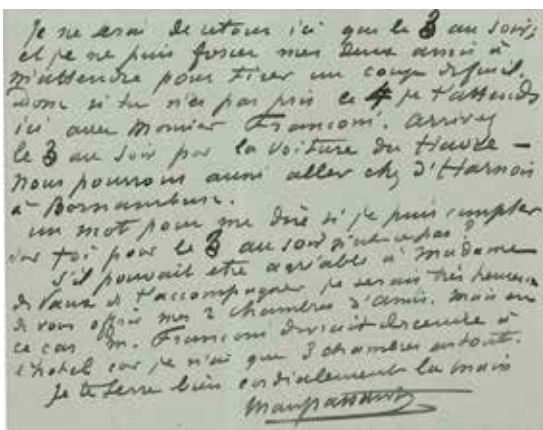 Je ne serai de retour ici que le 3 au soir,
et je ne puis forcer mes deux amis à
m'attendre pour tirer un coup de fusil.
Donc si tu n'es pas pris le 4 je t'attends
ici avec Monsieur Franconi. Arrivez
le 3 au soir par la voiture du Havre –
nous pourrons aussi aller chez d'Harnois
à Bornambusc.
un mot pour me dire si je puis compter
sur toi pour le 3 au soir n'est-ce pas ?
S'il pouvait être agréable à madame
de t'accompagner je serais très heureux
de vous offrir mes 2 chambres d'amis. Mais en
ce cas M. Franconi devrait descendre à
l'hotel car je n'ai que 3 chambres en tout.
Je te serre bien cordialement la main
Maupassant